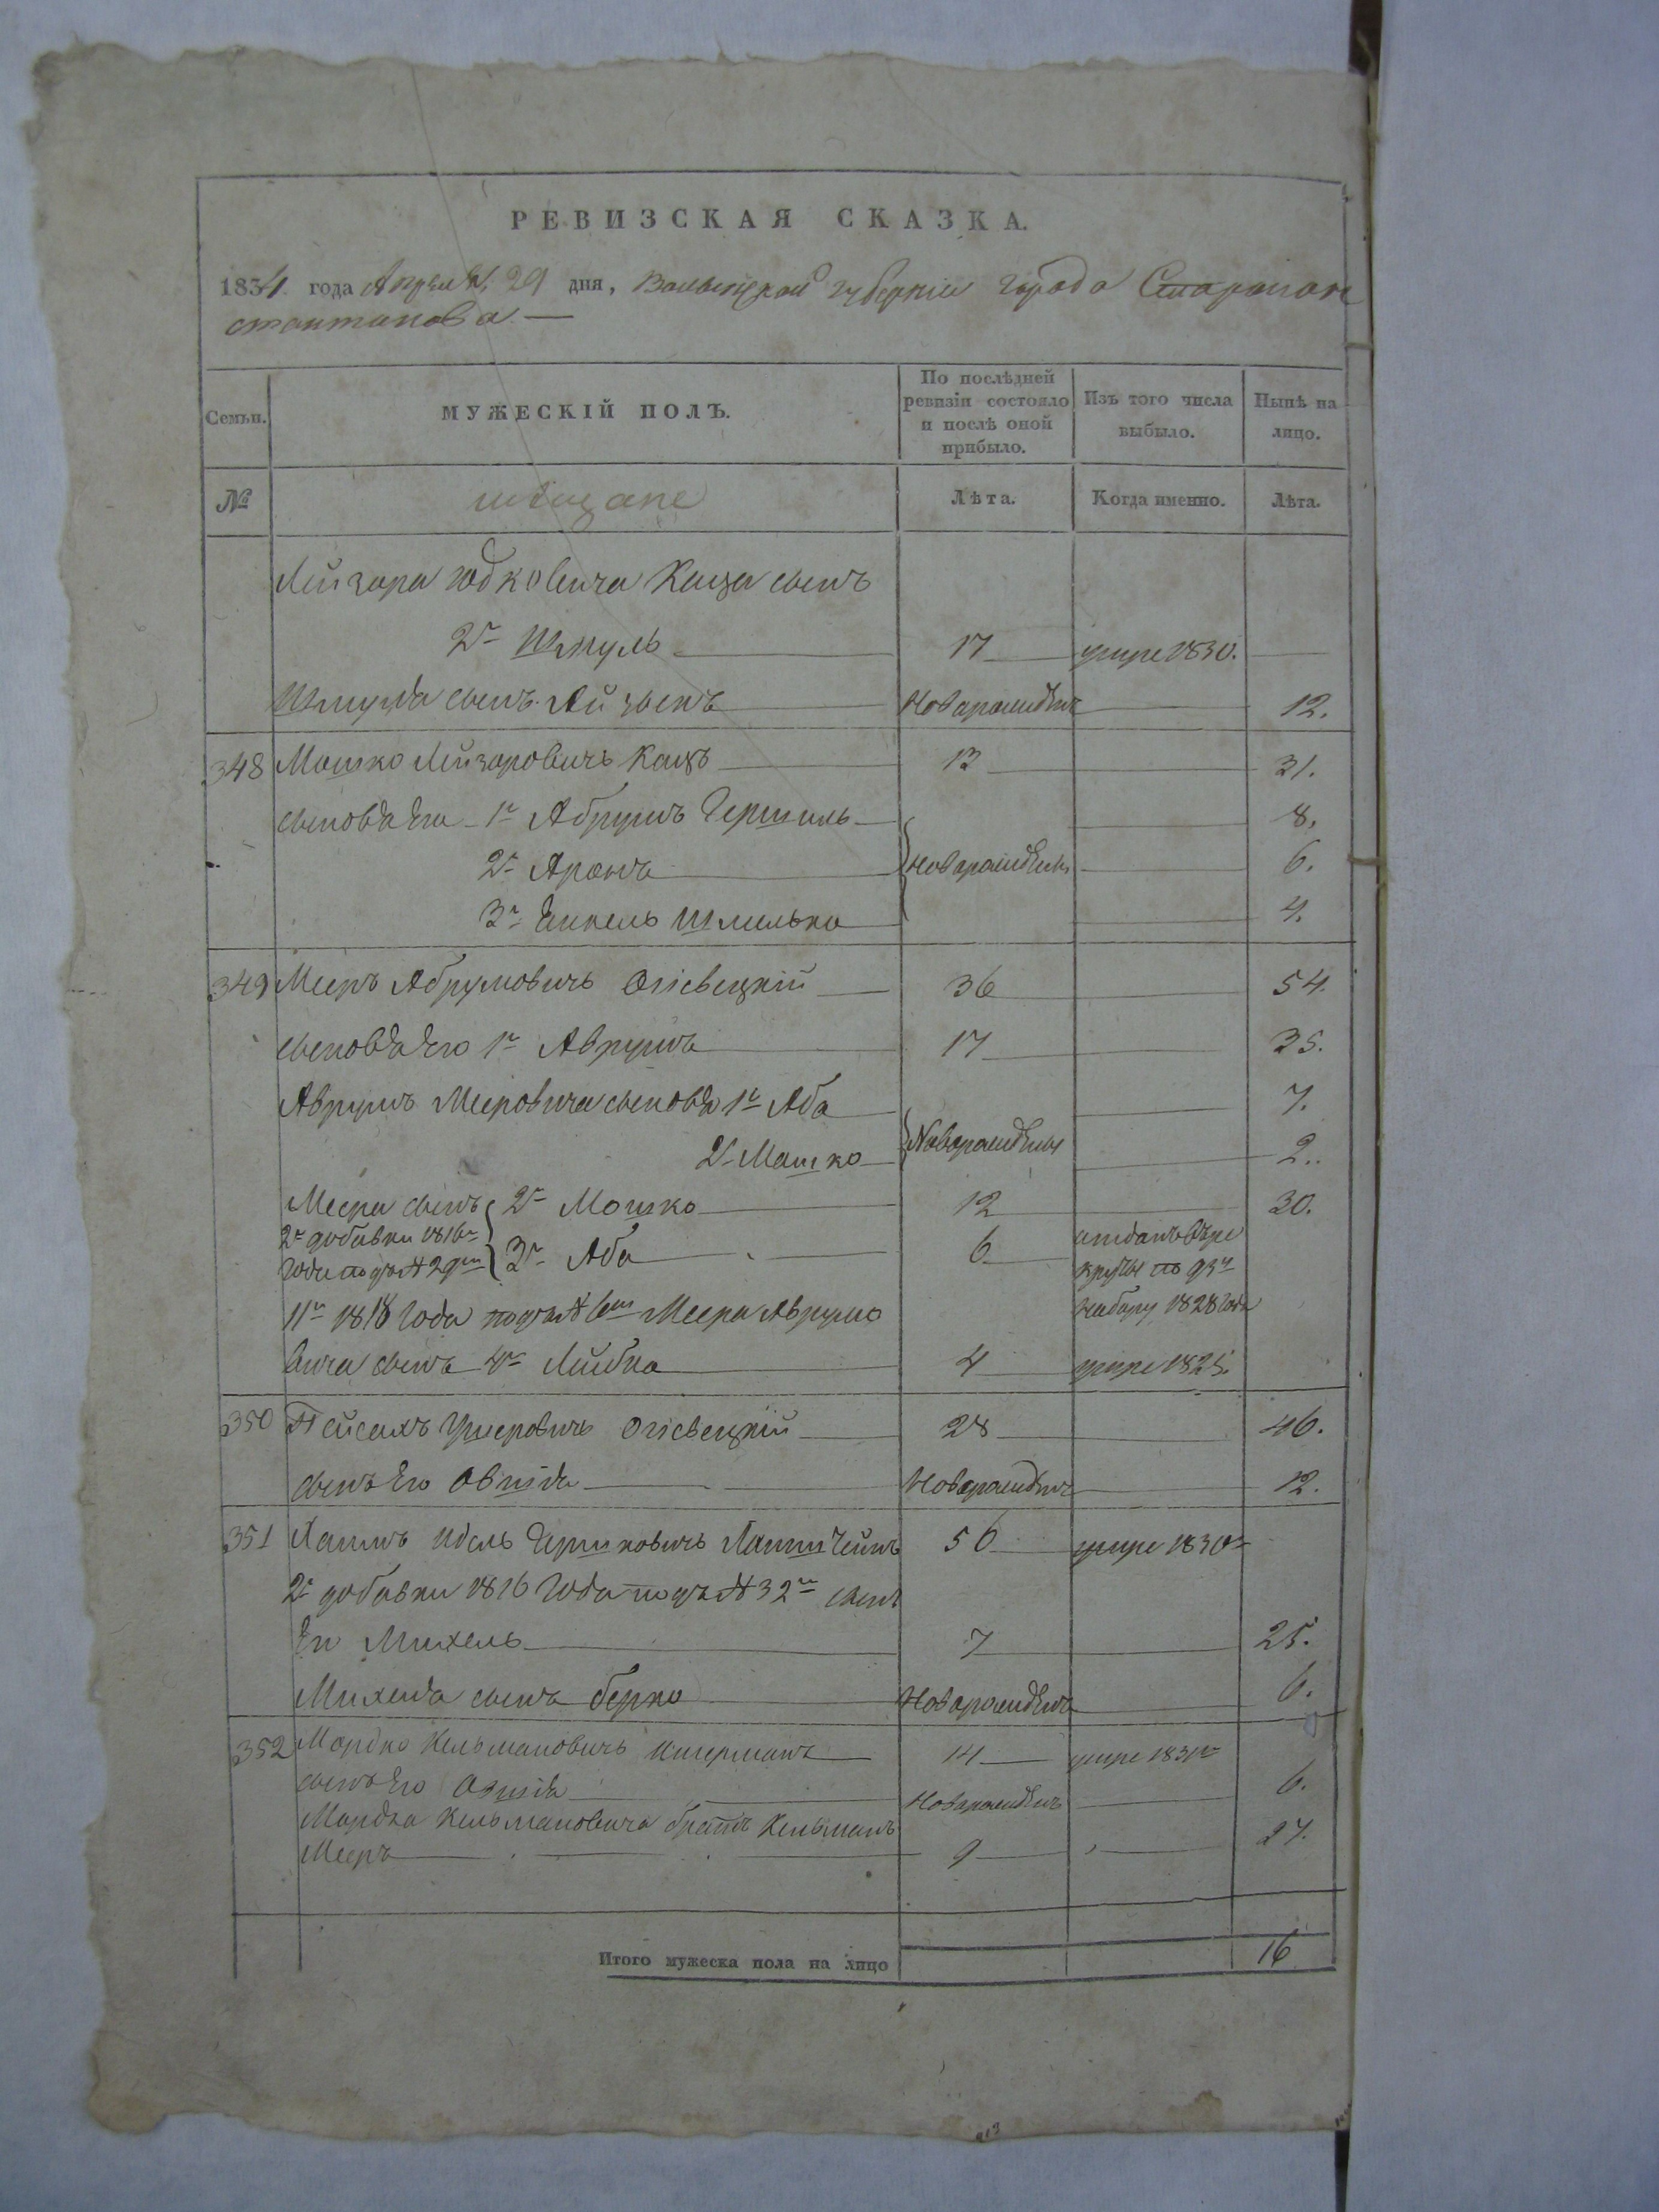 РЕВИЗСКАЯ СКАЗКА.
1834 года Апреля 29 дня, Волынской губернии города Старокон
стантинова —
Семьи. МУЖЕСКІЙ ПОЛЪ. По послѣдней ревизіи состояло и послѣ оной прибыло. Изъ того числа выбыло. Нынѣ на лицо.
№ мещане Лѣта. Когда именно. Лѣта.
Лейзора Юдковича Каца сынъ
2й Шмуль 17 умре 1830.
Шмуля сынъ Айзыкъ Новорожденъ 12.
348 Мошко Лейзоровичъ Кацъ 13 31.
сыновья Его 1й Абрумъ Гершиль 8.
2й Аронъ Новорожденны 6.
3й Янкель Шмилько 4.
349 Мееръ Абрумовичъ Огіевецкій 36 54.
сыновья Его 1й Аврумъ 17 35.
Аврума Мееровича сыновья 1й Аба 7.
2й Мошко Новорожденны 2.
Меера сынъ 2й Мошко 12 30.
2й добавки 1816го
года подъ № 29м 3й Аба 6 отданъ въ ре
круты по 93м
набору 1828 года
11й 1818 года подъ № 6м Меера Аврумо
вича сынъ 4й Лейбка 4 умре 1825.
350 Пейсахъ Ушеровичъ Огіевецкій 28 46.
сынъ Его Овшія Новорожденъ 12.
351 Хаимъ Идель Гершковичъ 56 умре 1830го
2й добавки 1816 года подъ № 32м сынъ
Его Михель 7 25.
Михеля сынъ Берко Новорожденъ 6.
352 Мордко Кельмановичъ 14 умре 1831го
сынъ Его Овшія Новорожденъ 6.
Мордка Кельмановича братъ Кельманъ
Мееръ 9 27.
Итого мужеска пола на лицо 16